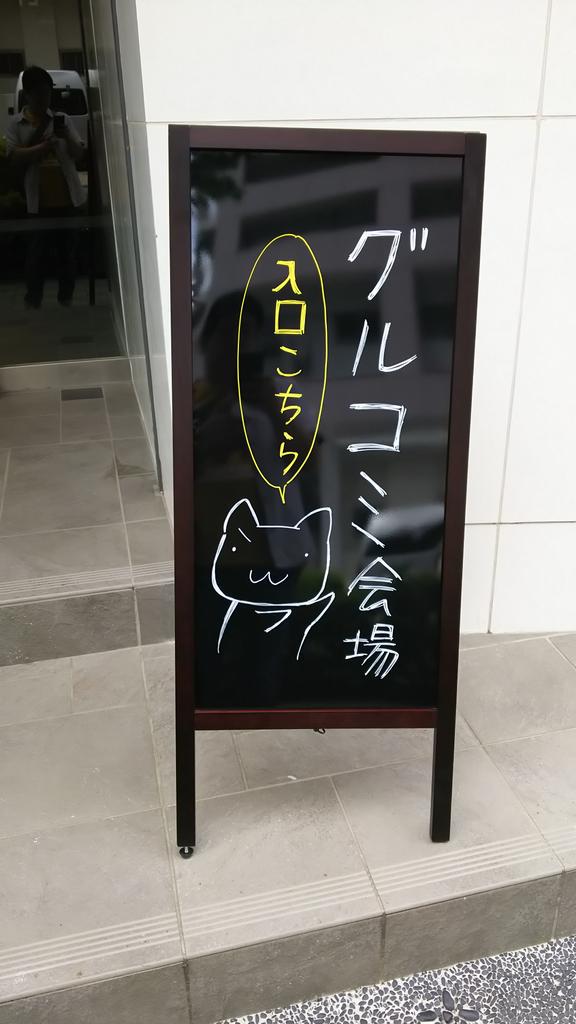 グルコミ会場
入口こちら